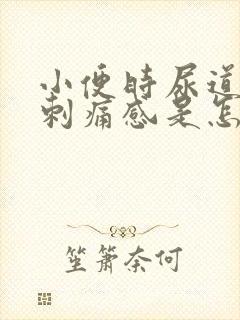 小便时尿道
刺痛感是怎
笙箫奈何